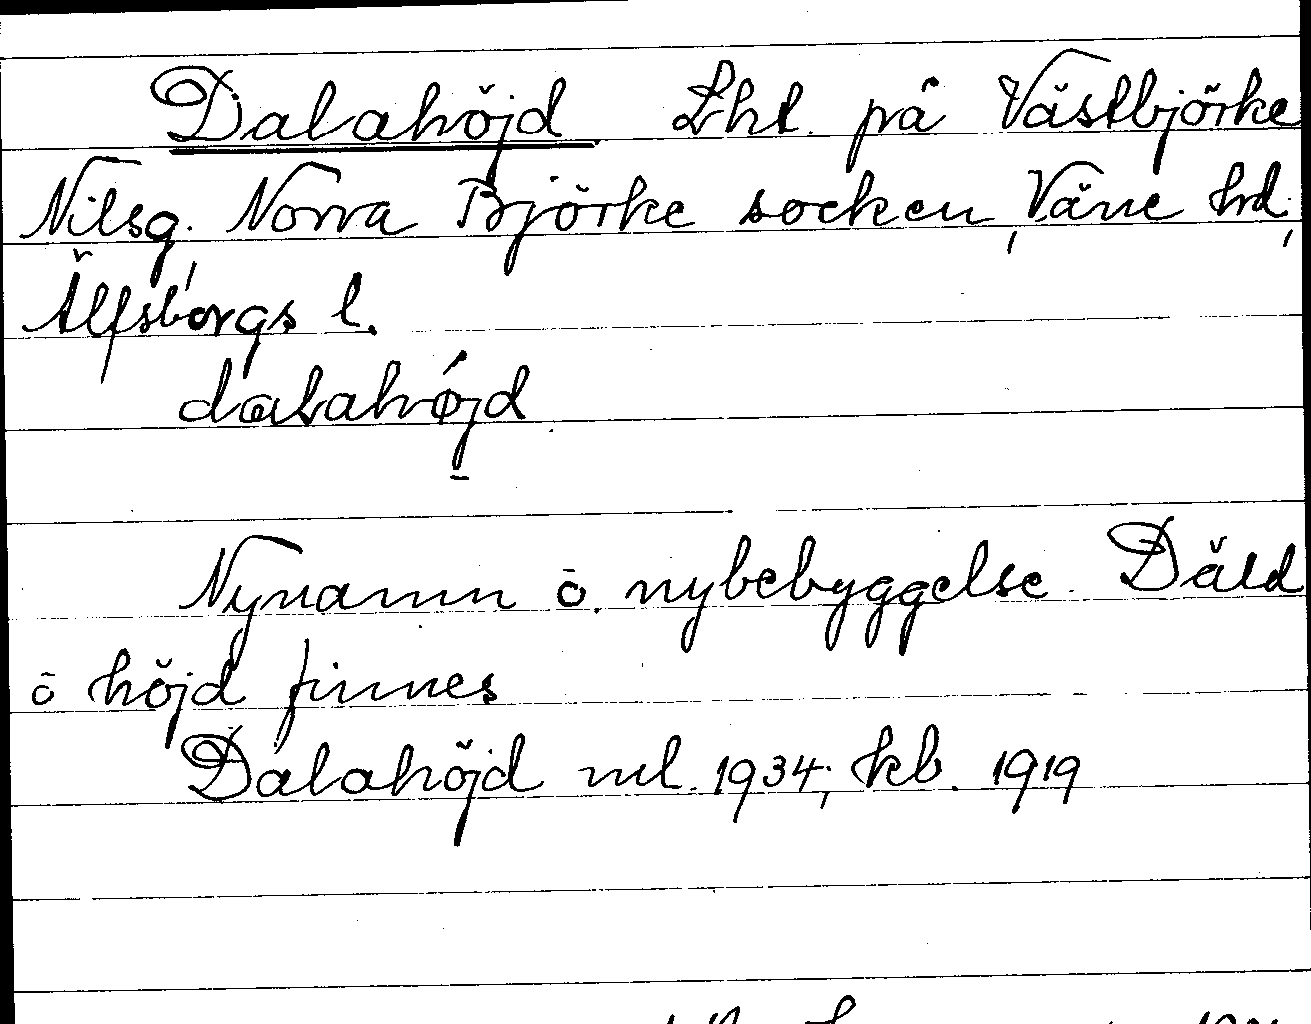 Dalahöjd Lht. på Västbjörke
Nilsg. Norra Björke socken, Väne hd,
Älfsborgs l.
dalahǿjd
Nynamn o. nybebyggelse. Däld
o höjd finnes
Dalahöjd ml. 1934; kb. 1919